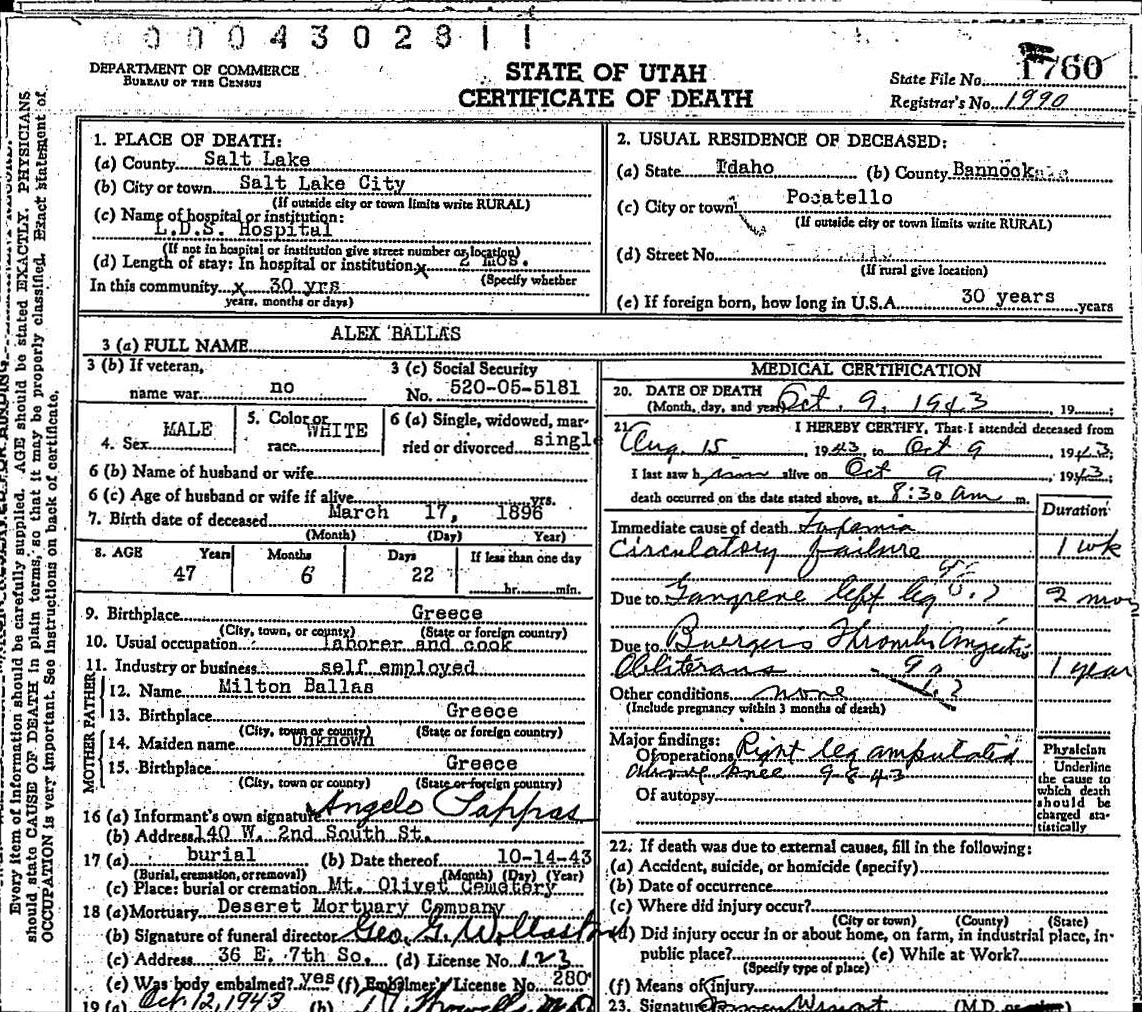 0 0 0 0 4 3 0 2 8 1 1
DEPARTMENT OF COMMERCE
BUREAU OF THE CENSUS
STATE OF UTAH
CERTIFICATE OF DEATH
State File No. 1760
Registrar's No. 1990
Every item of information should be carefully supplied. AGE should be stated EXACTLY. PHYSICIANS
should state CAUSE OF DEATH in plain terms, so that it may be properly classified. Exact statement of
OCCUPATION is very important. See instructions on back of certificate.
1. PLACE OF DEATH:
(a) County Salt Lake
(b) City or town Salt Lake City
(If outside city or town limits write RURAL)
(c) Name of hospital or institution:
L.D.S. Hospital
(If not in hospital or institution give street number or location)
(d) Length of stay: In hospital or institution x 2 mos.
(Specify whether
In this community x 30 yrs
years, months or days)
2. USUAL RESIDENCE OF DECEASED:
(a) State Idaho (b) County Bannock
(c) City or town Pocatello
(If outside city or town limits write RURAL)
(d) Street No.
(If rural give location)
(e) If foreign born, how long in U.S.A. 30 years years
3 (a) FULL NAME ALEX BALLAS
3 (b) If veteran,
name war no
3 (c) Social Security
No. 520-05-5181
4. Sex MALE
5. Color or
race WHITE
6 (a) Single, widowed, mar-
ried or divorced single
6 (b) Name of husband or wife
6 (c) Age of husband or wife if alive yrs.
7. Birth date of deceased March 17, 1896
(Month) (Day) Year)
8. AGE Years Months Days If less than one day
47 6 22
hr. min.
9. Birthplace Greece
(City, town, or county) (State or foreign country)
10. Usual occupation laborer and cook
11. Industry or business self employed
FATHER
12. Name Milton Ballas
13. Birthplace Greece
(City, town or county) (State or foreign country)
MOTHER
14. Maiden name Unknown
15. Birthplace Greece
(City, town or county) (State or foreign country)
16 (a) Informant's own signature Angelo Pappas
(b) Address 140 W. 2nd South St.
17 (a) burial (b) Date thereof 10-14-43
(Burial, cremation, or removal) (Month) (Day) (Year)
(c) Place: burial or cremation Mt. Olivet Cemetery
18 (a) Mortuary Deseret Mortuary Company
(b) Signature of funeral director Geo. G.
(c) Address 36 E. 7th So. (d) License No. 123
(e) Was body embalmed? yes (f) Embalmer's License No. 280
19 (a) Oct 12, 1943 (b)
MEDICAL CERTIFICATION
20. DATE OF DEATH
(Month, day, and year) Oct. 9, 1943, 19 ;
21. I HEREBY CERTIFY, That I attended deceased from
Aug. 15, 1943, to Oct 9, 1943;
I last saw him alive on Oct 9, 1943;
death occurred on the date stated above, at 8:30 am m.
Duration
Immediate cause of death
Circulatory failure 1 wk
Due to Gangrene left leg 2 mos
Due to Buerger's Thrombo Angiitis
Obliterans 1 year
Other conditions none
(Include pregnancy within 3 months of death)
Major findings:
Of operations Right leg amputated
above knee 9-8-43
Of autopsy
Physician
Underline
the cause to
which death
should be
charged sta-
tistically
22. If death was due to external causes, fill in the following:
(a) Accident, suicide, or homicide (specify)
(b) Date of occurrence
(c) Where did injury occur?
(City or town) (County) (State)
(d) Did injury occur in or about home, on farm, in industrial place, in-
public place? (e) While at Work?
(Specify type of place)
(f) Means of Injury
23. Signature (M.D. or